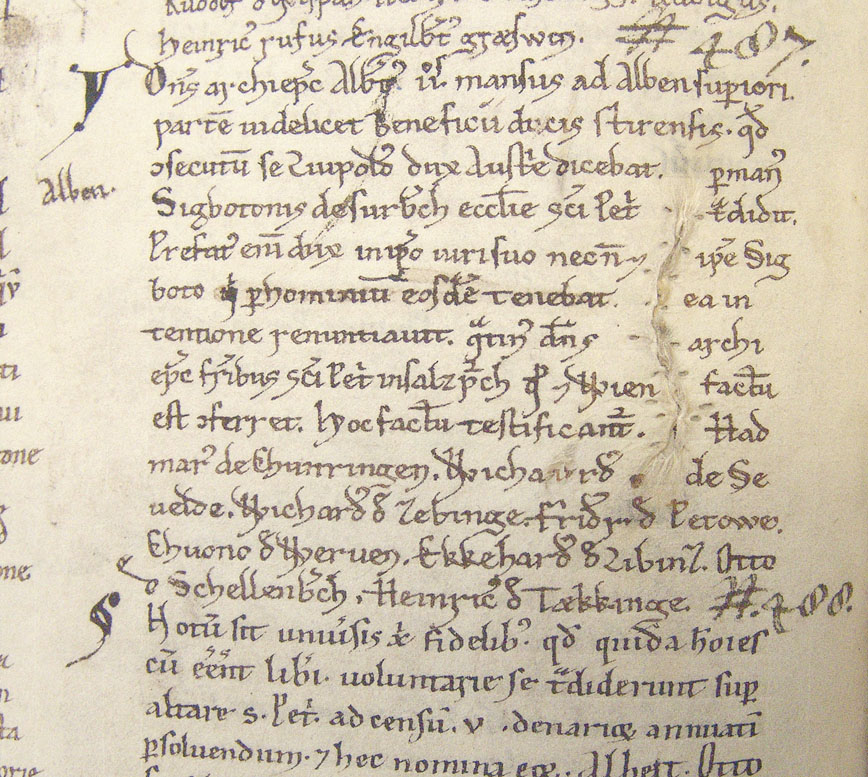 heinric rufus. Engilbt græswin. # 487.
Dons archiepc Albt ii mansus ad Alben superiori.
parte videlicet beneficiu ducis stirensis. qd
ↄsecutu se Liupold dux Austrie dicebat. p man
Alben.
Sigbotonis de surbch ecclie sci Pet tdidit.
Prefat eni dux in ipo viri suo necn ⁊ ipe Sig
boto p hominiu eosde tenebat. ea in
tentione renuntiavit. qtin dns archi
epc fribus sci Pet in salzpch ⁊ Wien factu
est ↄferret. hoc factu testificant. Had
mar de Chunringen. Wichard de Se
velde. Wichard d Zebinge. Fridr d Petowe.
Chuono d Werven. Ekkehard d Otto
d Schellenbch. Heinric d Tækkinge. #. 488.
Notu sit univsis xp fidelib. qd quida hoies
cu eent libi. voluntarie se tdiderunt sup
altare s. Pet. ad censu. v. denarioꝝ annuati
psolvendum. ⁊ hec nomina eoꝝ. Albert. Otto